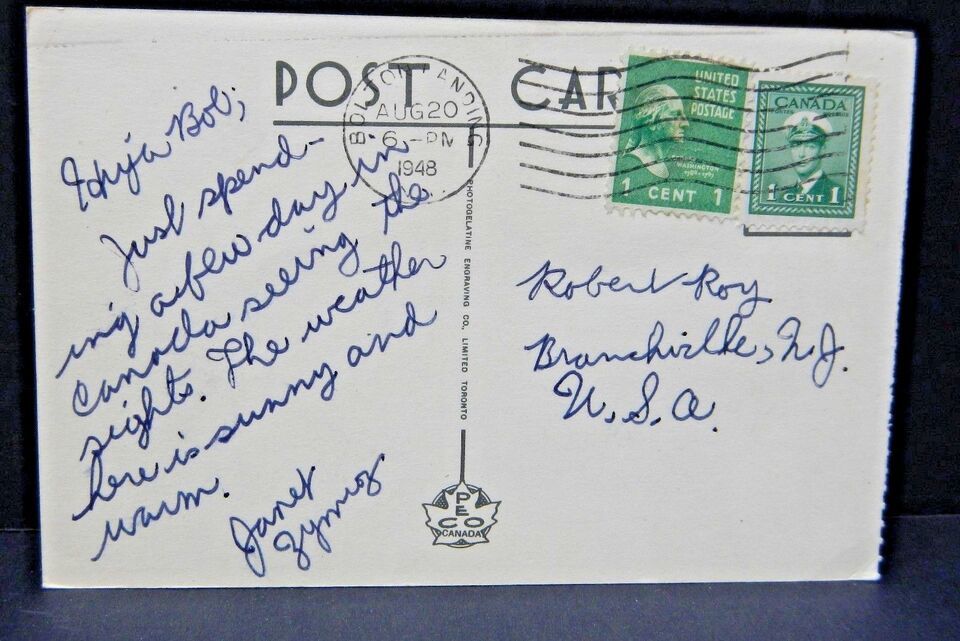 POST CAR
BOLTON LANDING
AUG 20
6 - PM
1948
UNITED
STATES
POSTAGE
WASHINGTON
1 CENT 1
CANADA
1 CENT 1
Hiya Bob;
Just spend-
ing a few day in
Canada seeing the
sights. The weather
here is sunny and
warm.
Janet
PHOTOGELATINE ENGRAVING CO., LIMITED TORONTO
PECO
CANADA
Robert Roy
Branchville, N.J.
U.S.A.